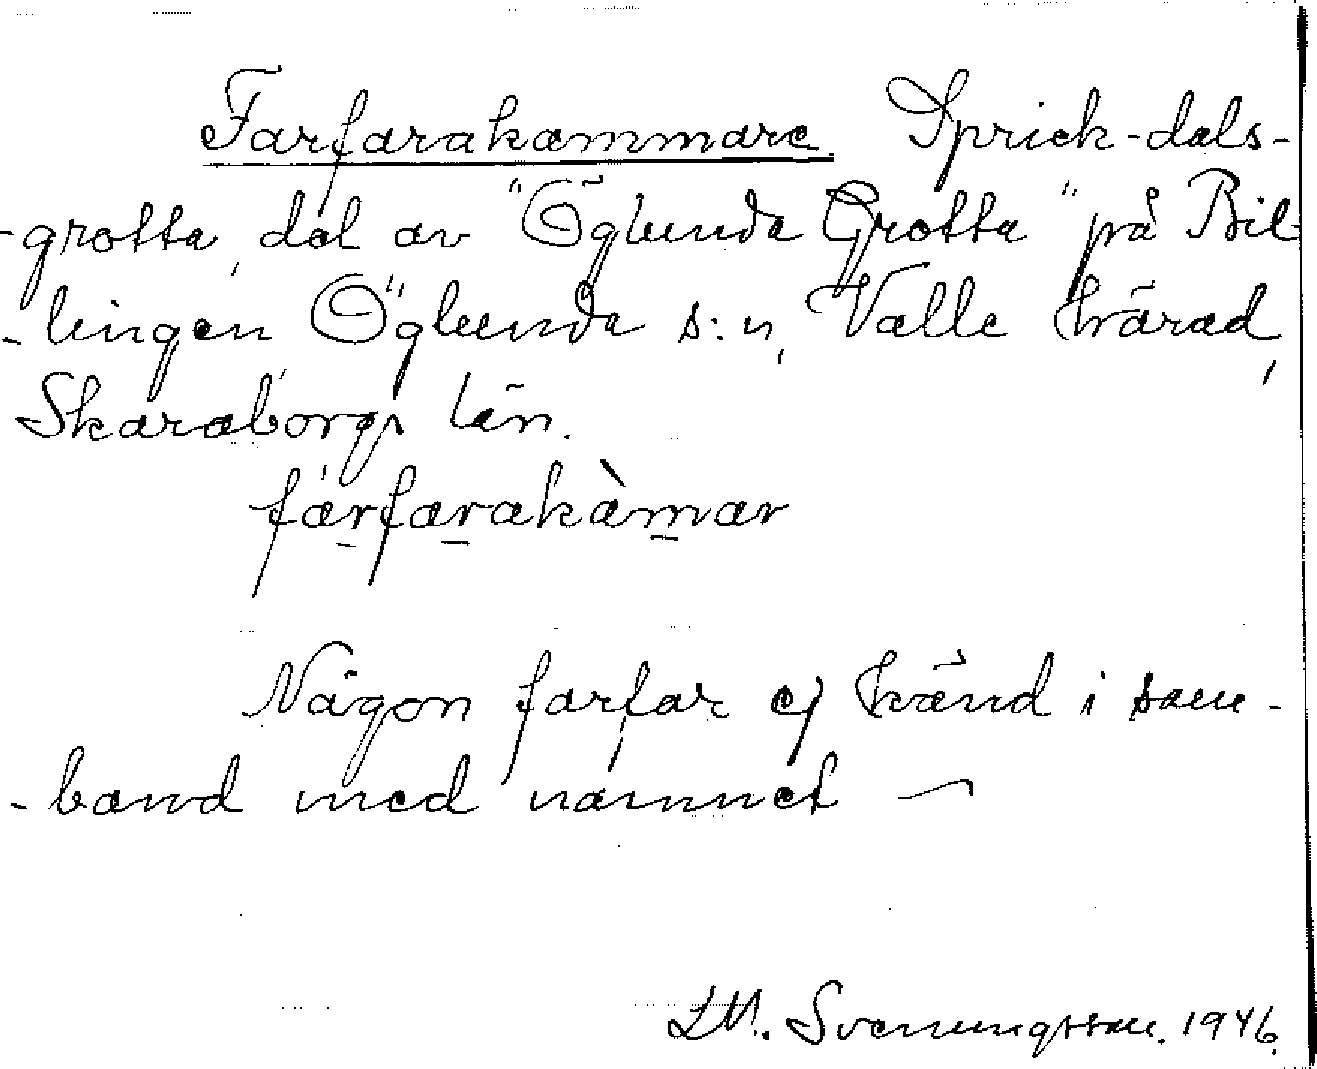 Farfarakammare. Sprick-dals-
-grotta, del av "Öglunda Grotta" på Bil-
-lingen, Öglunda s:n, Valle härad,
Skaraborgs län.
fárfarakàmar
Någon farfar ej känd i sam-
-band med namnet —
LM. Svenungsson. 1946.